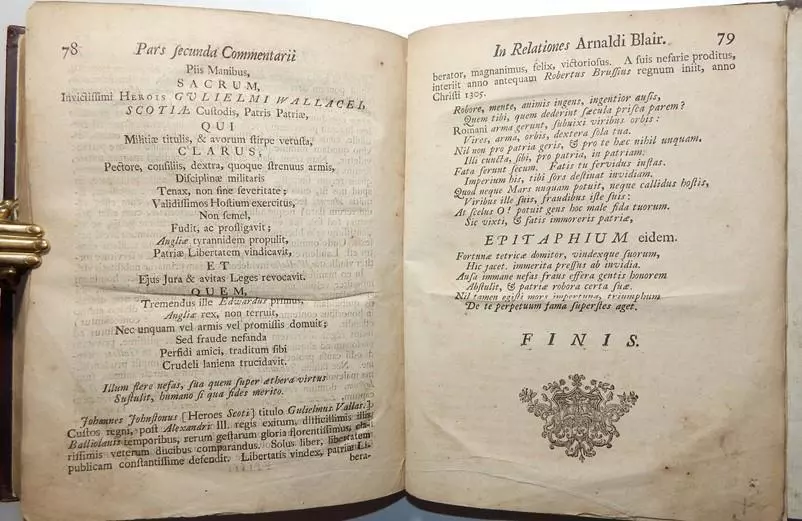 78 Pars secunda Commentarii
Piis Manibus,
SACRUM,
Invictissimi HEROIS GULIELMI WALLACEI,
SCOTIÆ Custodis, Patris Patriæ,
QUI
Militiæ titulis, & avorum stirpe vetusta,
CLARUS;
Pectore, consiliis, dextra, quoque strenuus armis,
Disciplinæ militaris
Tenax, non sine severitate;
Validissimos Hostium exercitus,
Non semel,
Fudit, ac profligavit;
Angliæ tyrannidem propulit,
Patriæ Libertatem vindicavit,
ET
Ejus Jura & avitas Leges revocavit.
QUEM,
Tremendus ille Edwardus primus,
Angliæ rex, non terruit,
Nec unquam vel armis vel promissis domuit;
Sed fraude nefanda
Perfidi amici, traditum sibi
Crudeli laniena trucidavit.
Illum flere nefas, sua quem super æthera virtus
Sustulit, humano si qua fides merito.
Johannes Johnstonus [Heroes Scoti] titulo Gulielmus Vallas.]
Custos regni, post Alexandri III. regis exitum, difficillimis illis
Balliolanis temporibus, rerum gestarum gloria florentissimus, cla-
rissimis veterum ducibus comparandus. Solus liber, libertatem
publicam constantissime defendit. Libertatis vindex, patriæ Li-
bera-
In Relationes Arnaldi Blair. 79
berator, magnanimus, felix, victoriosus. A suis nefarie proditus,
interiit anno antequam Robertus Brussius regnum iniit, anno
Christi 1305.
Robore, mente, animis ingens, ingentior ausis,
Quem tibi, quem dederint sæcula prisca parem?
Romani arma gerunt, subnixi viribus orbis:
Vires, arma, orbis, dextera sola tua.
Nil non pro patria geris, & pro te hæc nihil unquam.
Illi cuncta, sibi, pro patria, in patriam:
Fata ferunt secum. Fatis tu fervidus instas.
Imperium his, tibi sors destinat invidiam.
Quod neque Mars unquam potuit, neque callidus hostis,
Viribus ille suis, fraudibus iste suis:
At scelus O! potuit gens hoc male fida tuorum.
Sic vixti, & fatis immoreris patriæ,
EPITAPHIUM eidem.
Fortunæ tetricæ domitor, vindexque suorum,
Hic jacet. immerita pressus ab invidia.
Ausa immane nefas fraus effera gentis honorem
Abstulit, & patriæ robora certa suæ.
Nil tamen egisti mors importuna, triumphum
De te perpetuum fama superstes aget.
FINIS.